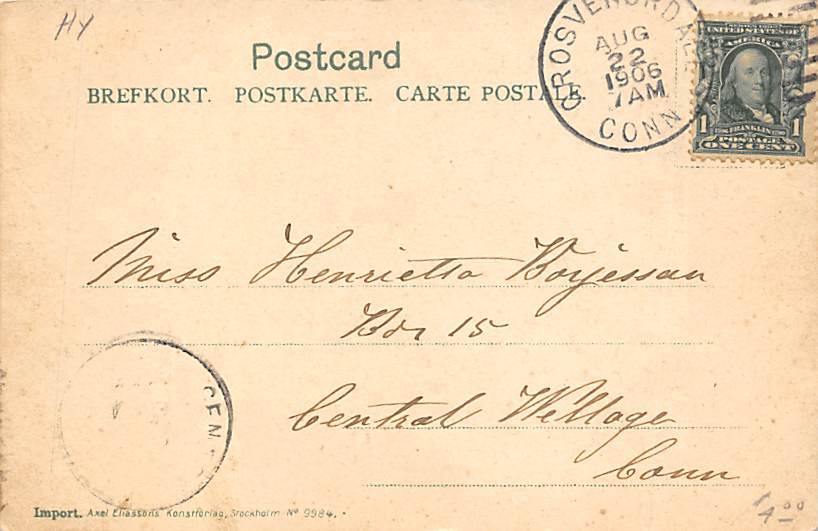 HY
Postcard
BREFKORT. POSTKARTE. CARTE POSTALE.
GROSVENORDALE
AUG
22
1906
7 AM
CONN
SERIES 1902
UNITED STATES OF
AMERICA
1 FRANKLIN 1
POSTAGE
ONE CENT
Miss Henrietta Borjessan
Box 15
Central Wellage
Conn
CEN
Import. Axel Eliassons Konstförlag, Stockholm Nº 9984.